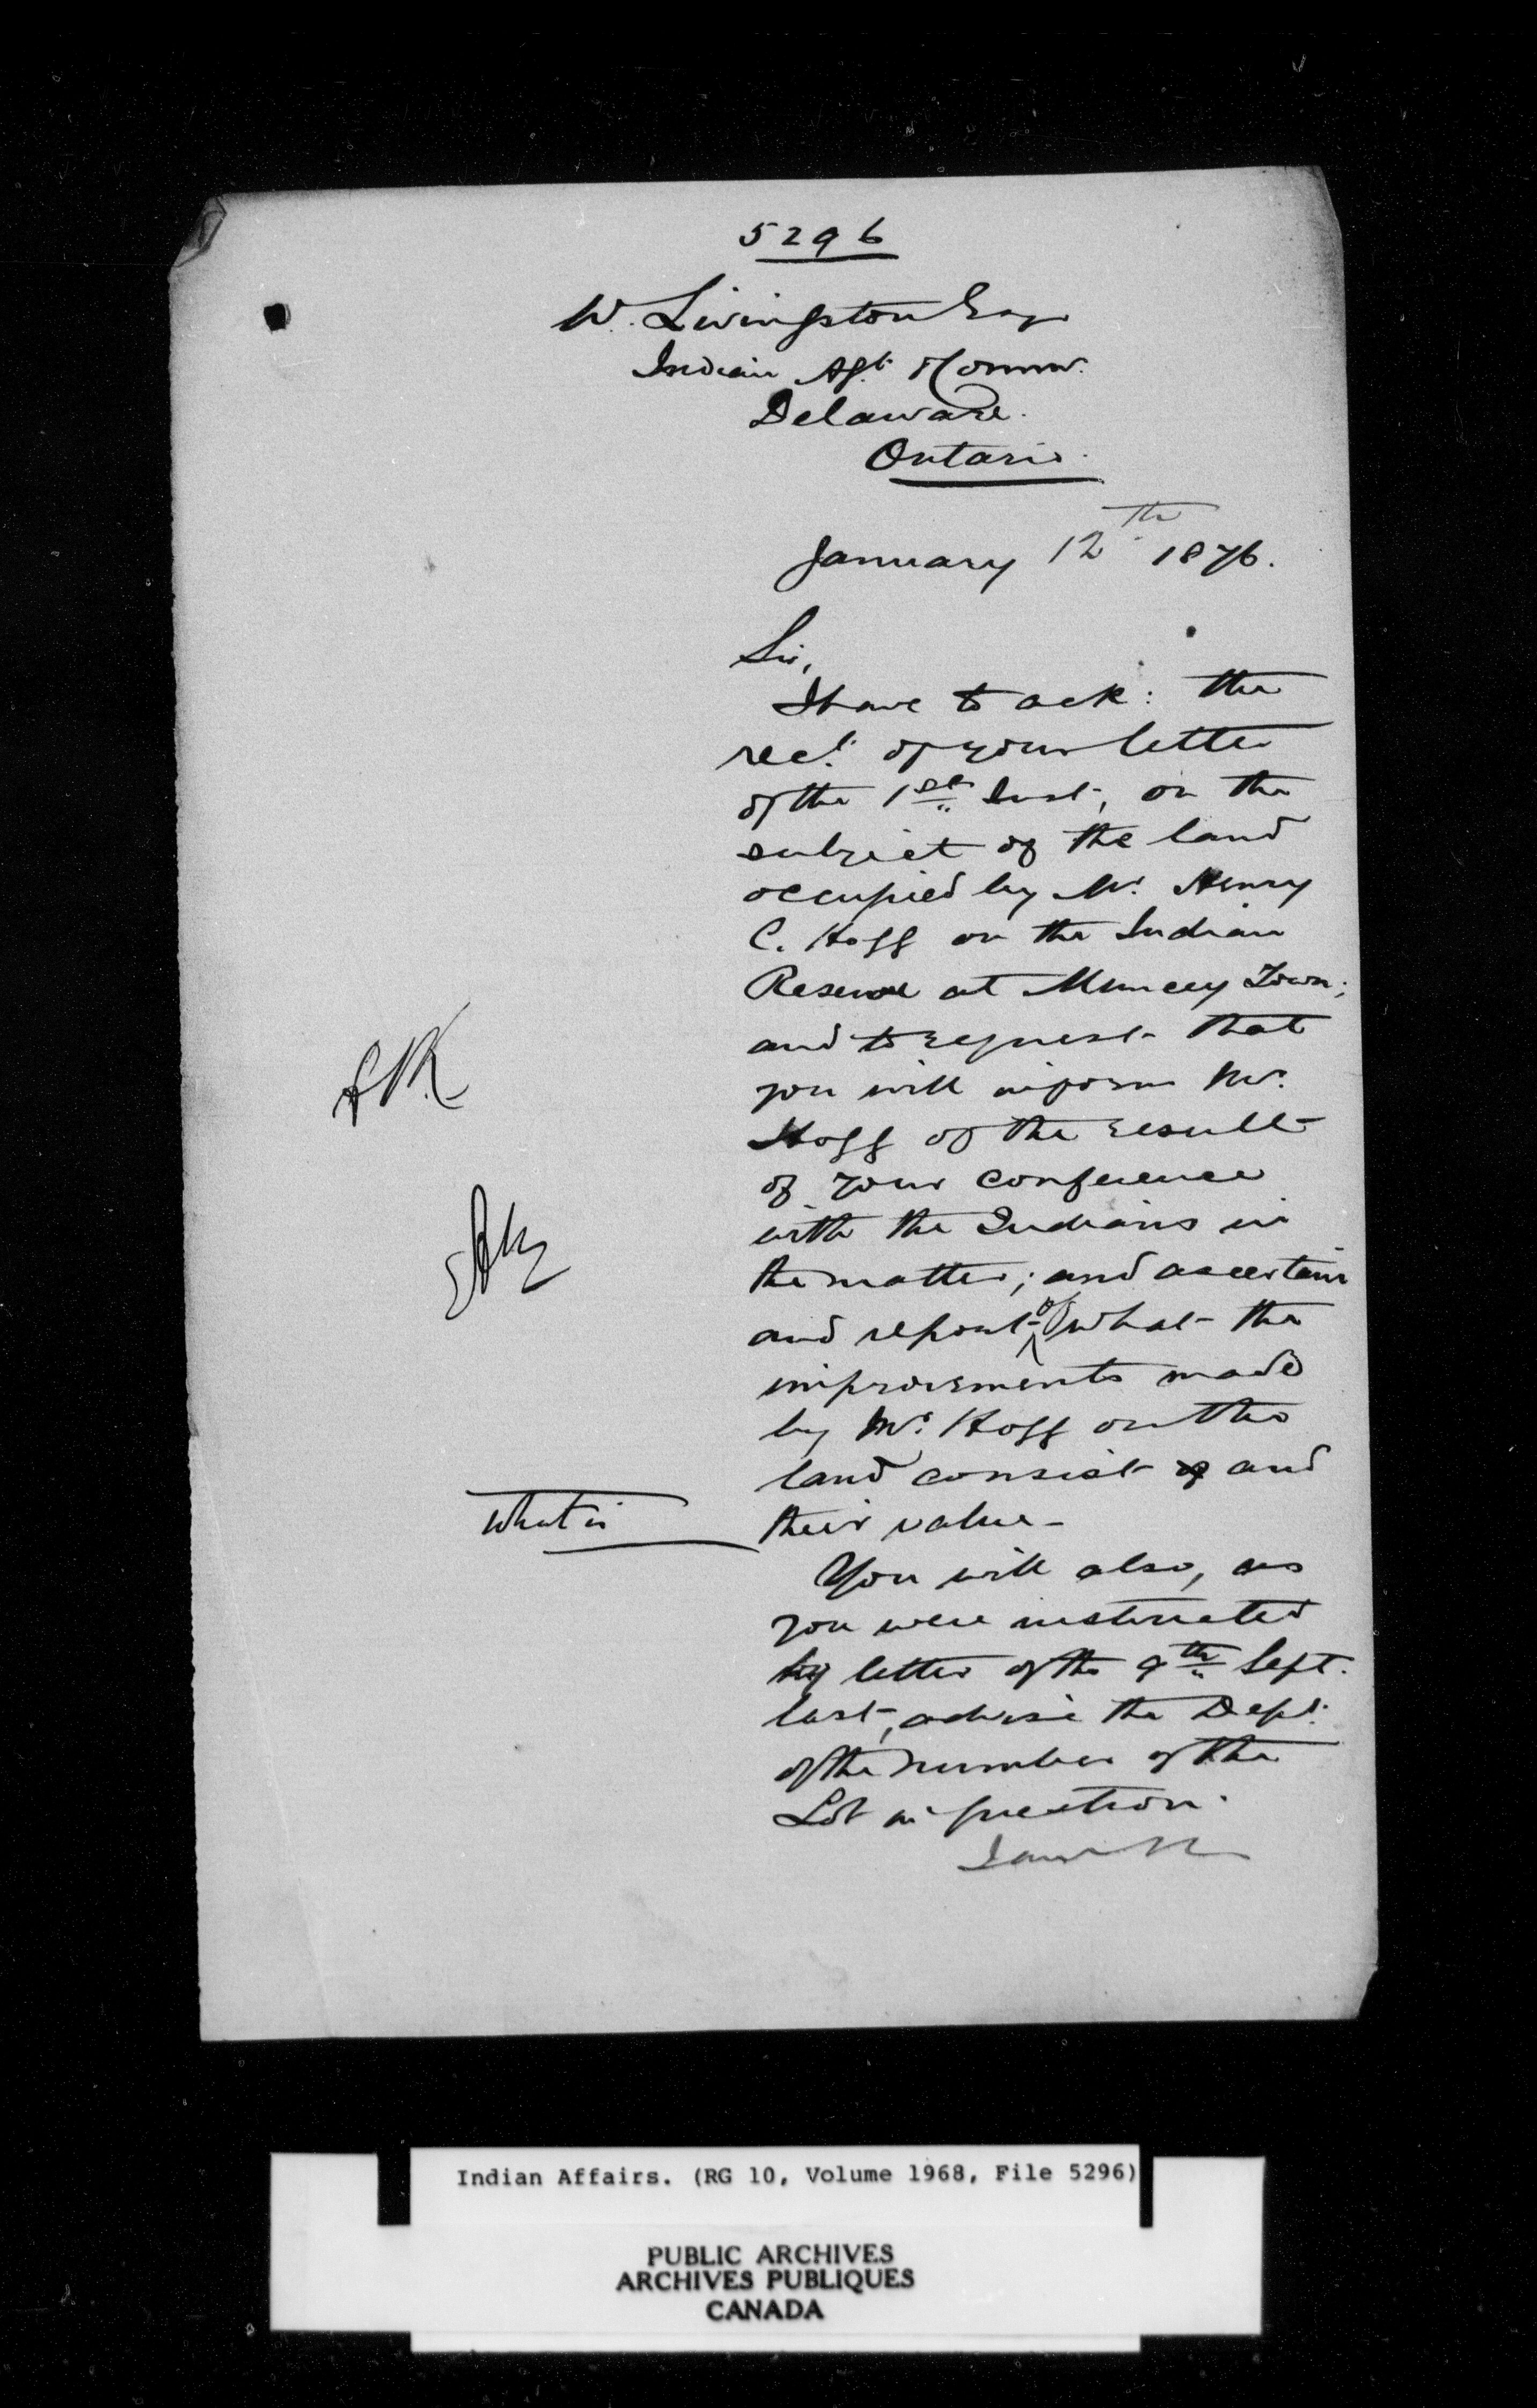 5296
W. Livingston Esq
Indian Agt & Comm.
Delaware.
Ontario.
January 12th 1876.
Sir,
I have to ack: the
rect. of your letter
of the 1st Inst, on the
subject of the land
occupied by Mr. Henry
C. Hogg on the Indian
Reserve at Muncey Town;
and to request that
you will inform Mr.
Hogg of the result
of your conference
with the Indians in
the matter; and ascertain
and report of what the
improvements made
by Mr. Hogg on the
land consist of and
what is their value -
You will also, as
you were instructed
by letter of the 9th Sept.
last, advise the Dept.
of the number of the
Lot in question.
Indian Affairs. (RG 10, Volume 1968, File 5296)
PUBLIC ARCHIVES
ARCHIVES PUBLIQUES
CANADA